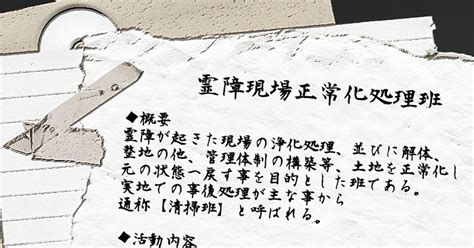 霊障現場正常化処理班
◆概要
霊障が起きた現場の浄化処理、並びに解体、
整地の他、管理体制の構築等、土地を正常化し
元の状態へ戻す事を目的とした班である。
実地での事後処理が主な事から
通称【清掃班】と呼ばれる。
◆活動内容